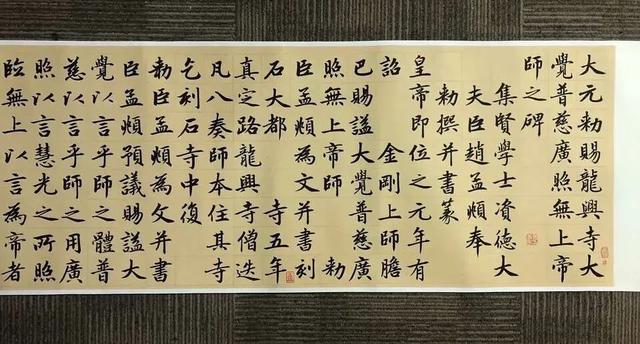 大元勅賜龍興寺大
覺普慈廣照無上帝
師之碑
集賢學士資德大
夫臣趙孟頫奉
勅撰并書篆
皇帝即位之元年有
詔 金剛上師膽
巴賜謚大覺普慈廣
照無上帝師 勅
臣孟頫為文并書刻
石大都 寺五年
真定路龍興寺僧迭
凡八奏師本住其寺
乞刻石寺中復
勅臣孟頫為文并書
臣孟頫預議賜謚大
覺以言乎師之體普
慈以言乎師之用廣
照以言慧光之所照
臨無上以言為帝者